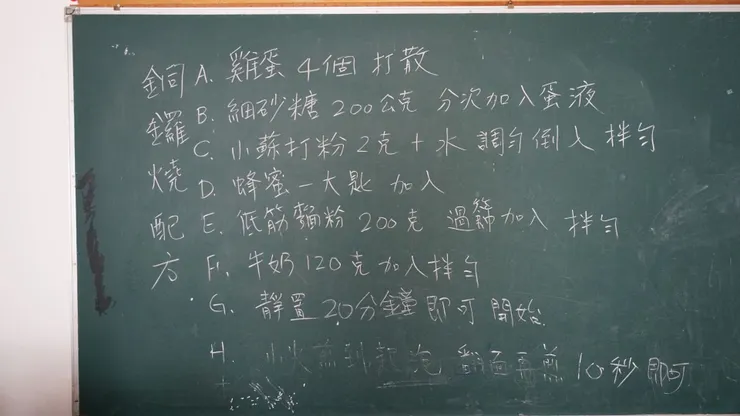 銅鑼燒配方
A. 雞蛋 4個 打散
B. 細砂糖 200公克 分次加入蛋液
C. 小蘇打粉 2克 + 水 調勻倒入 拌勻
D. 蜂蜜一大匙 加入
E. 低筋麵粉 200克 過篩加入 拌勻
F. 牛奶 120克 加入拌勻
G. 靜置 20分鐘即可開始
H. 小火煎到起泡 翻面再煎 10秒即可